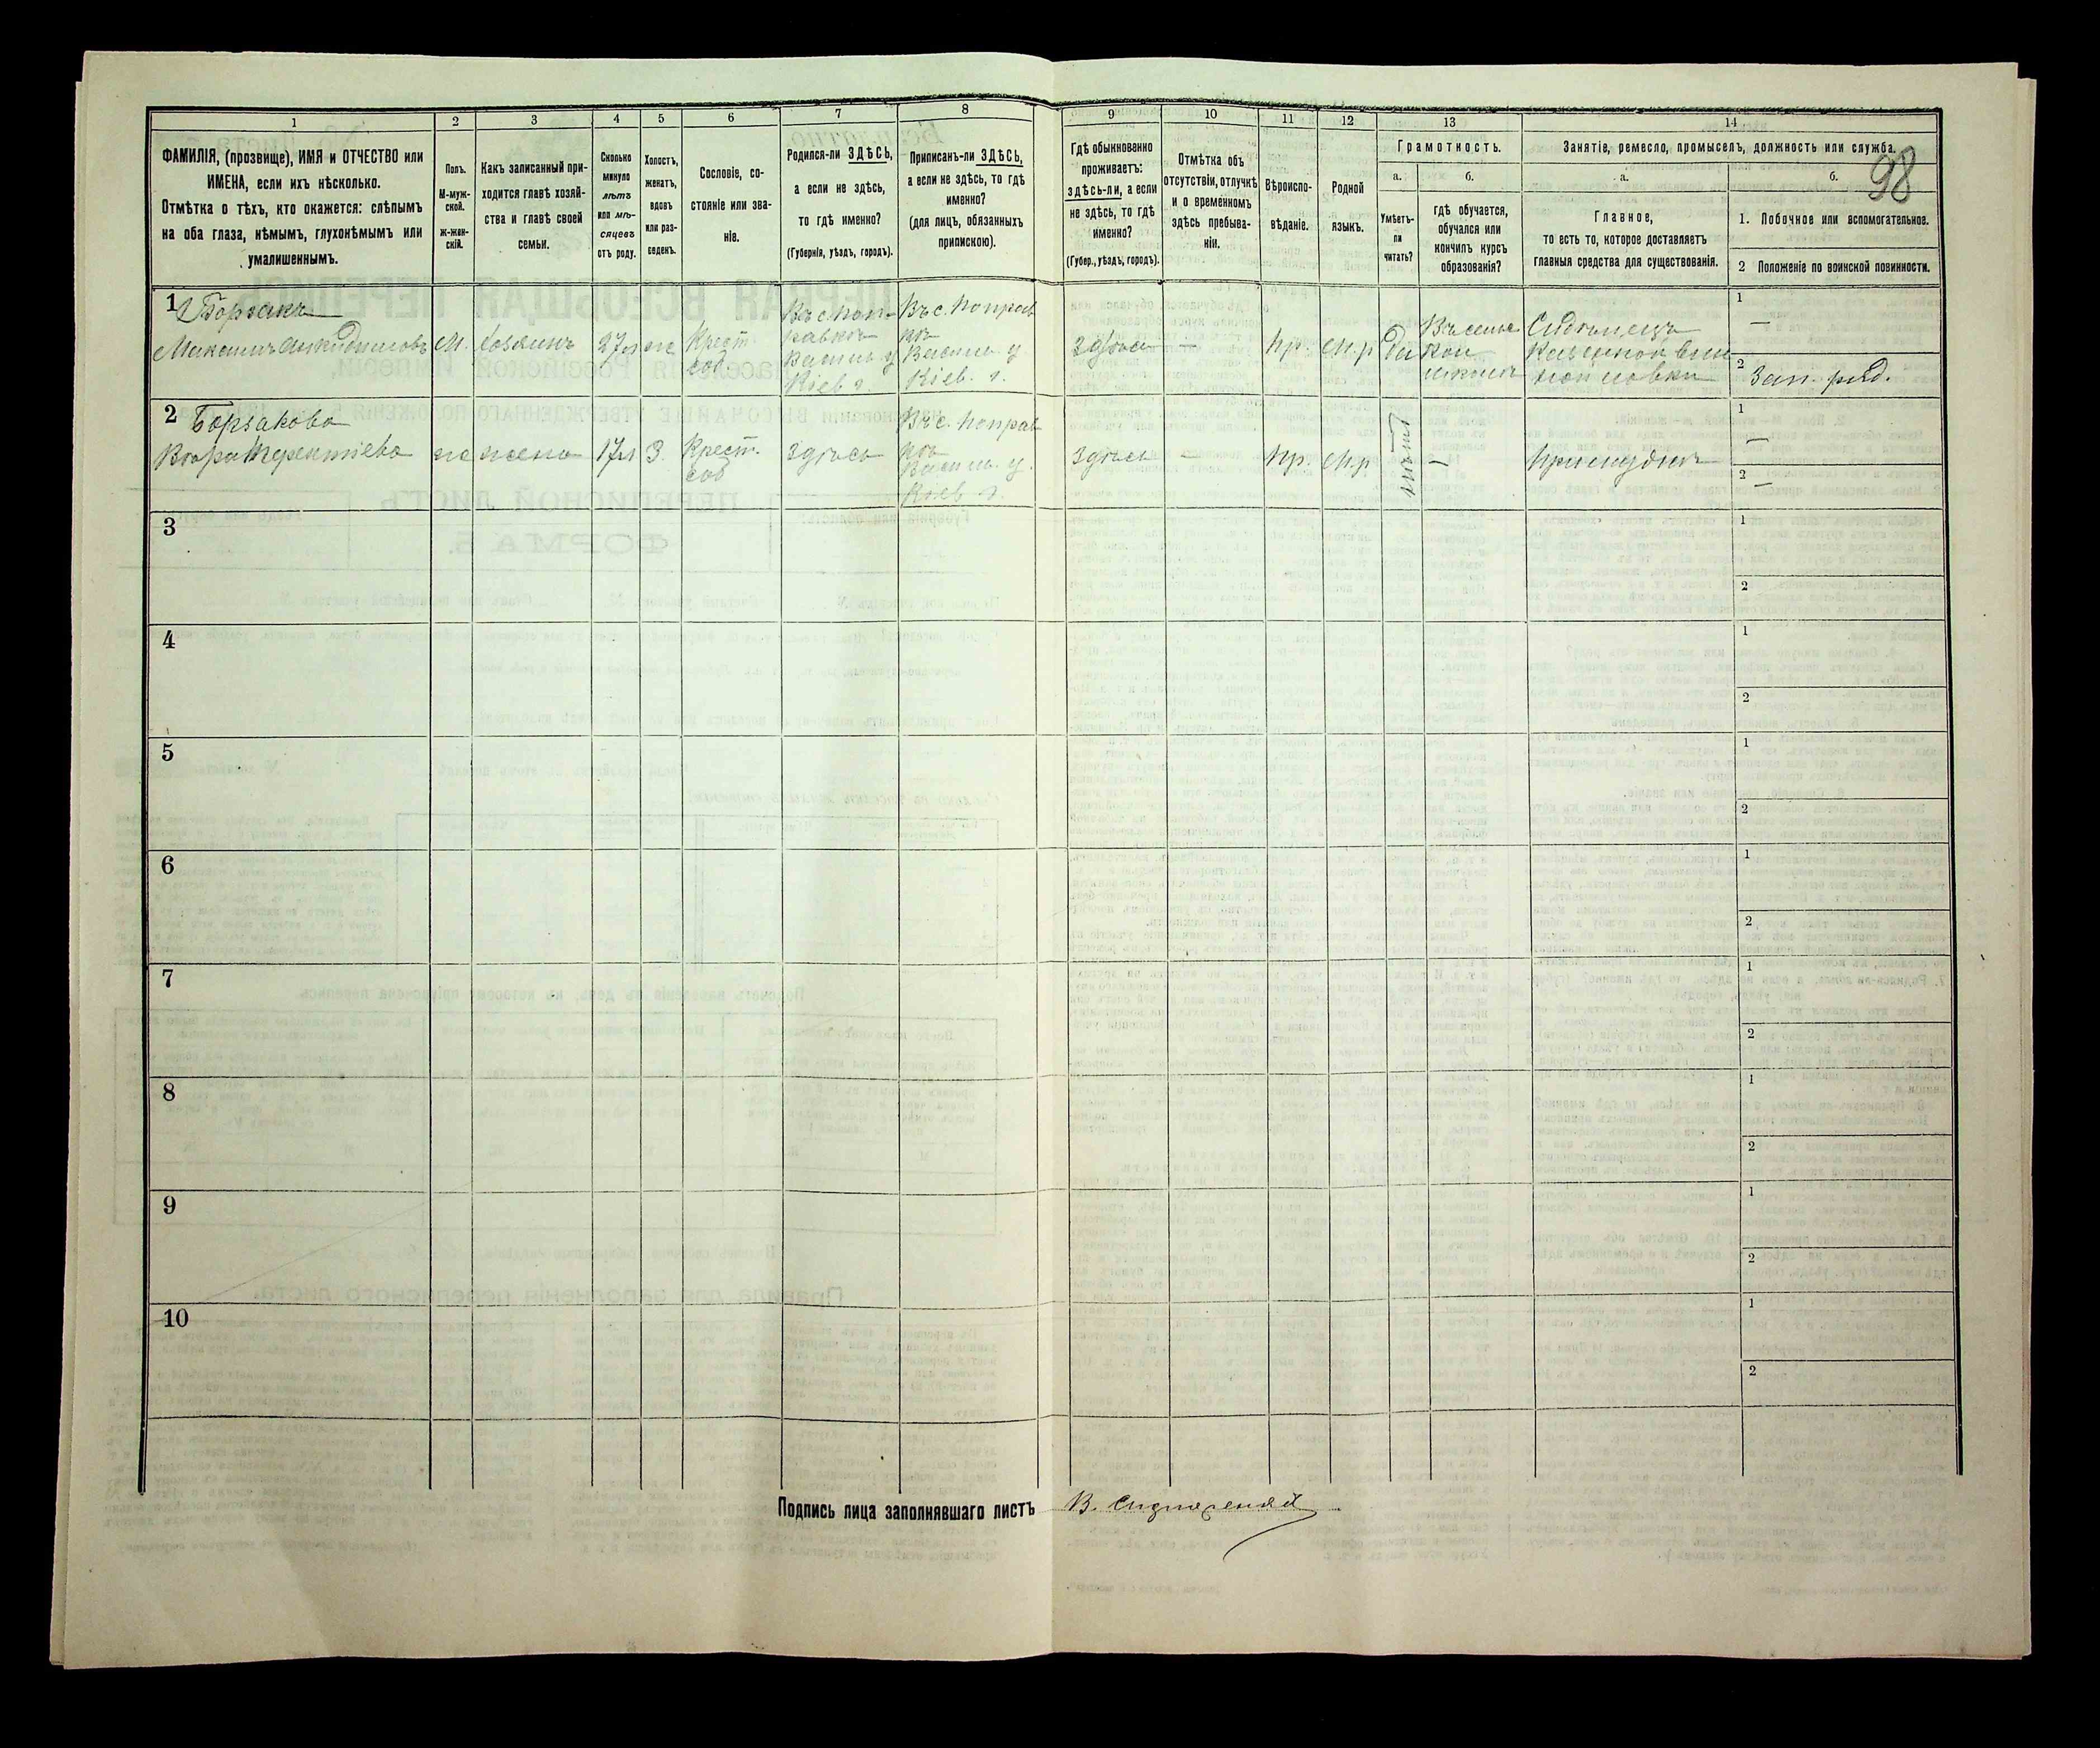 98
1 2 3 4 5 6 7 8 9 10 11 12 13 14
ФАМИЛІЯ, (прозвище), ИМЯ и ОТЧЕСТВО или
ИМЕНА, если ихъ нѣсколько.
Отмѣтка о тѣхъ, кто окажется: слѣпымъ
на оба глаза, нѣмымъ, глухонѣмымъ или
умалишеннымъ.
Полъ.
М-муж-
ской.
ж-жен-
скій.
Какъ записанный при-
ходится главѣ хозяй-
ства и главѣ своей
семьи.
Сколько
минуло
лѣтъ
или мѣ-
сяцевъ
отъ роду.
Холостъ,
женатъ,
вдовъ
или раз-
веденъ.
Сословіе, со-
стояніе или зва-
ніе.
Родился-ли ЗДѢСЬ,
а если не здѣсь,
то гдѣ именно?
(Губернія, уѣздъ, городъ).
Приписанъ-ли ЗДѢСЬ,
а если не здѣсь, то гдѣ
именно?
(для лицъ, обязанныхъ
припискою).
Гдѣ обыкновенно
проживаетъ:
здѣсь-ли, а если
не здѣсь, то гдѣ
именно?
(Губер., уѣздъ, городъ).
Отмѣтка объ
отсутствіи, отлучкѣ
и о временномъ
здѣсь пребыва-
ніи.
Вѣроиспо-
вѣданіе.
Родной
языкъ.
Грамотность.
а.
Умѣетъ-
ли
читать?
б.
гдѣ обучается,
обучался или
кончилъ курсъ
образованія?
Занятіе, ремесло, промыселъ, должность или служба.
а.
Главное,
то есть то, которое доставляетъ
главныя средства для существованія.
б.
1. Побочное или вспомогательное.
2 Положеніе по воинской повинности.
1
Борзакъ
Максимъ
М.
хозяинъ
27л
ж
Крест.
соб.
Въ с. Поп-
равкѣ
Васильк. у
Кіев. г.
Въ с. Поправ
кѣ
Васильк. у
Кіев. г.
здѣсь
—
пр.
м.р
Да
школѣ
Сидѣлецъ
Казенной вин
ной лавки
1
—
2 Зап. ряд.
2
Борзакова
Вѣра Терентіева
ж
жена
17л
З.
Крест.
соб
здѣсь
Въ с. Поправ
кѣ
Васильк. у.
Кіев г.
здѣсь
—
пр.
м.р
нѣтъ
—
При мужѣ
1
—
2
—
3
1
2
4
1
2
5
1
2
6
1
2
7
1
2
8
1
2
9
1
2
10
1
2
Подпись лица заполнявшаго листъ